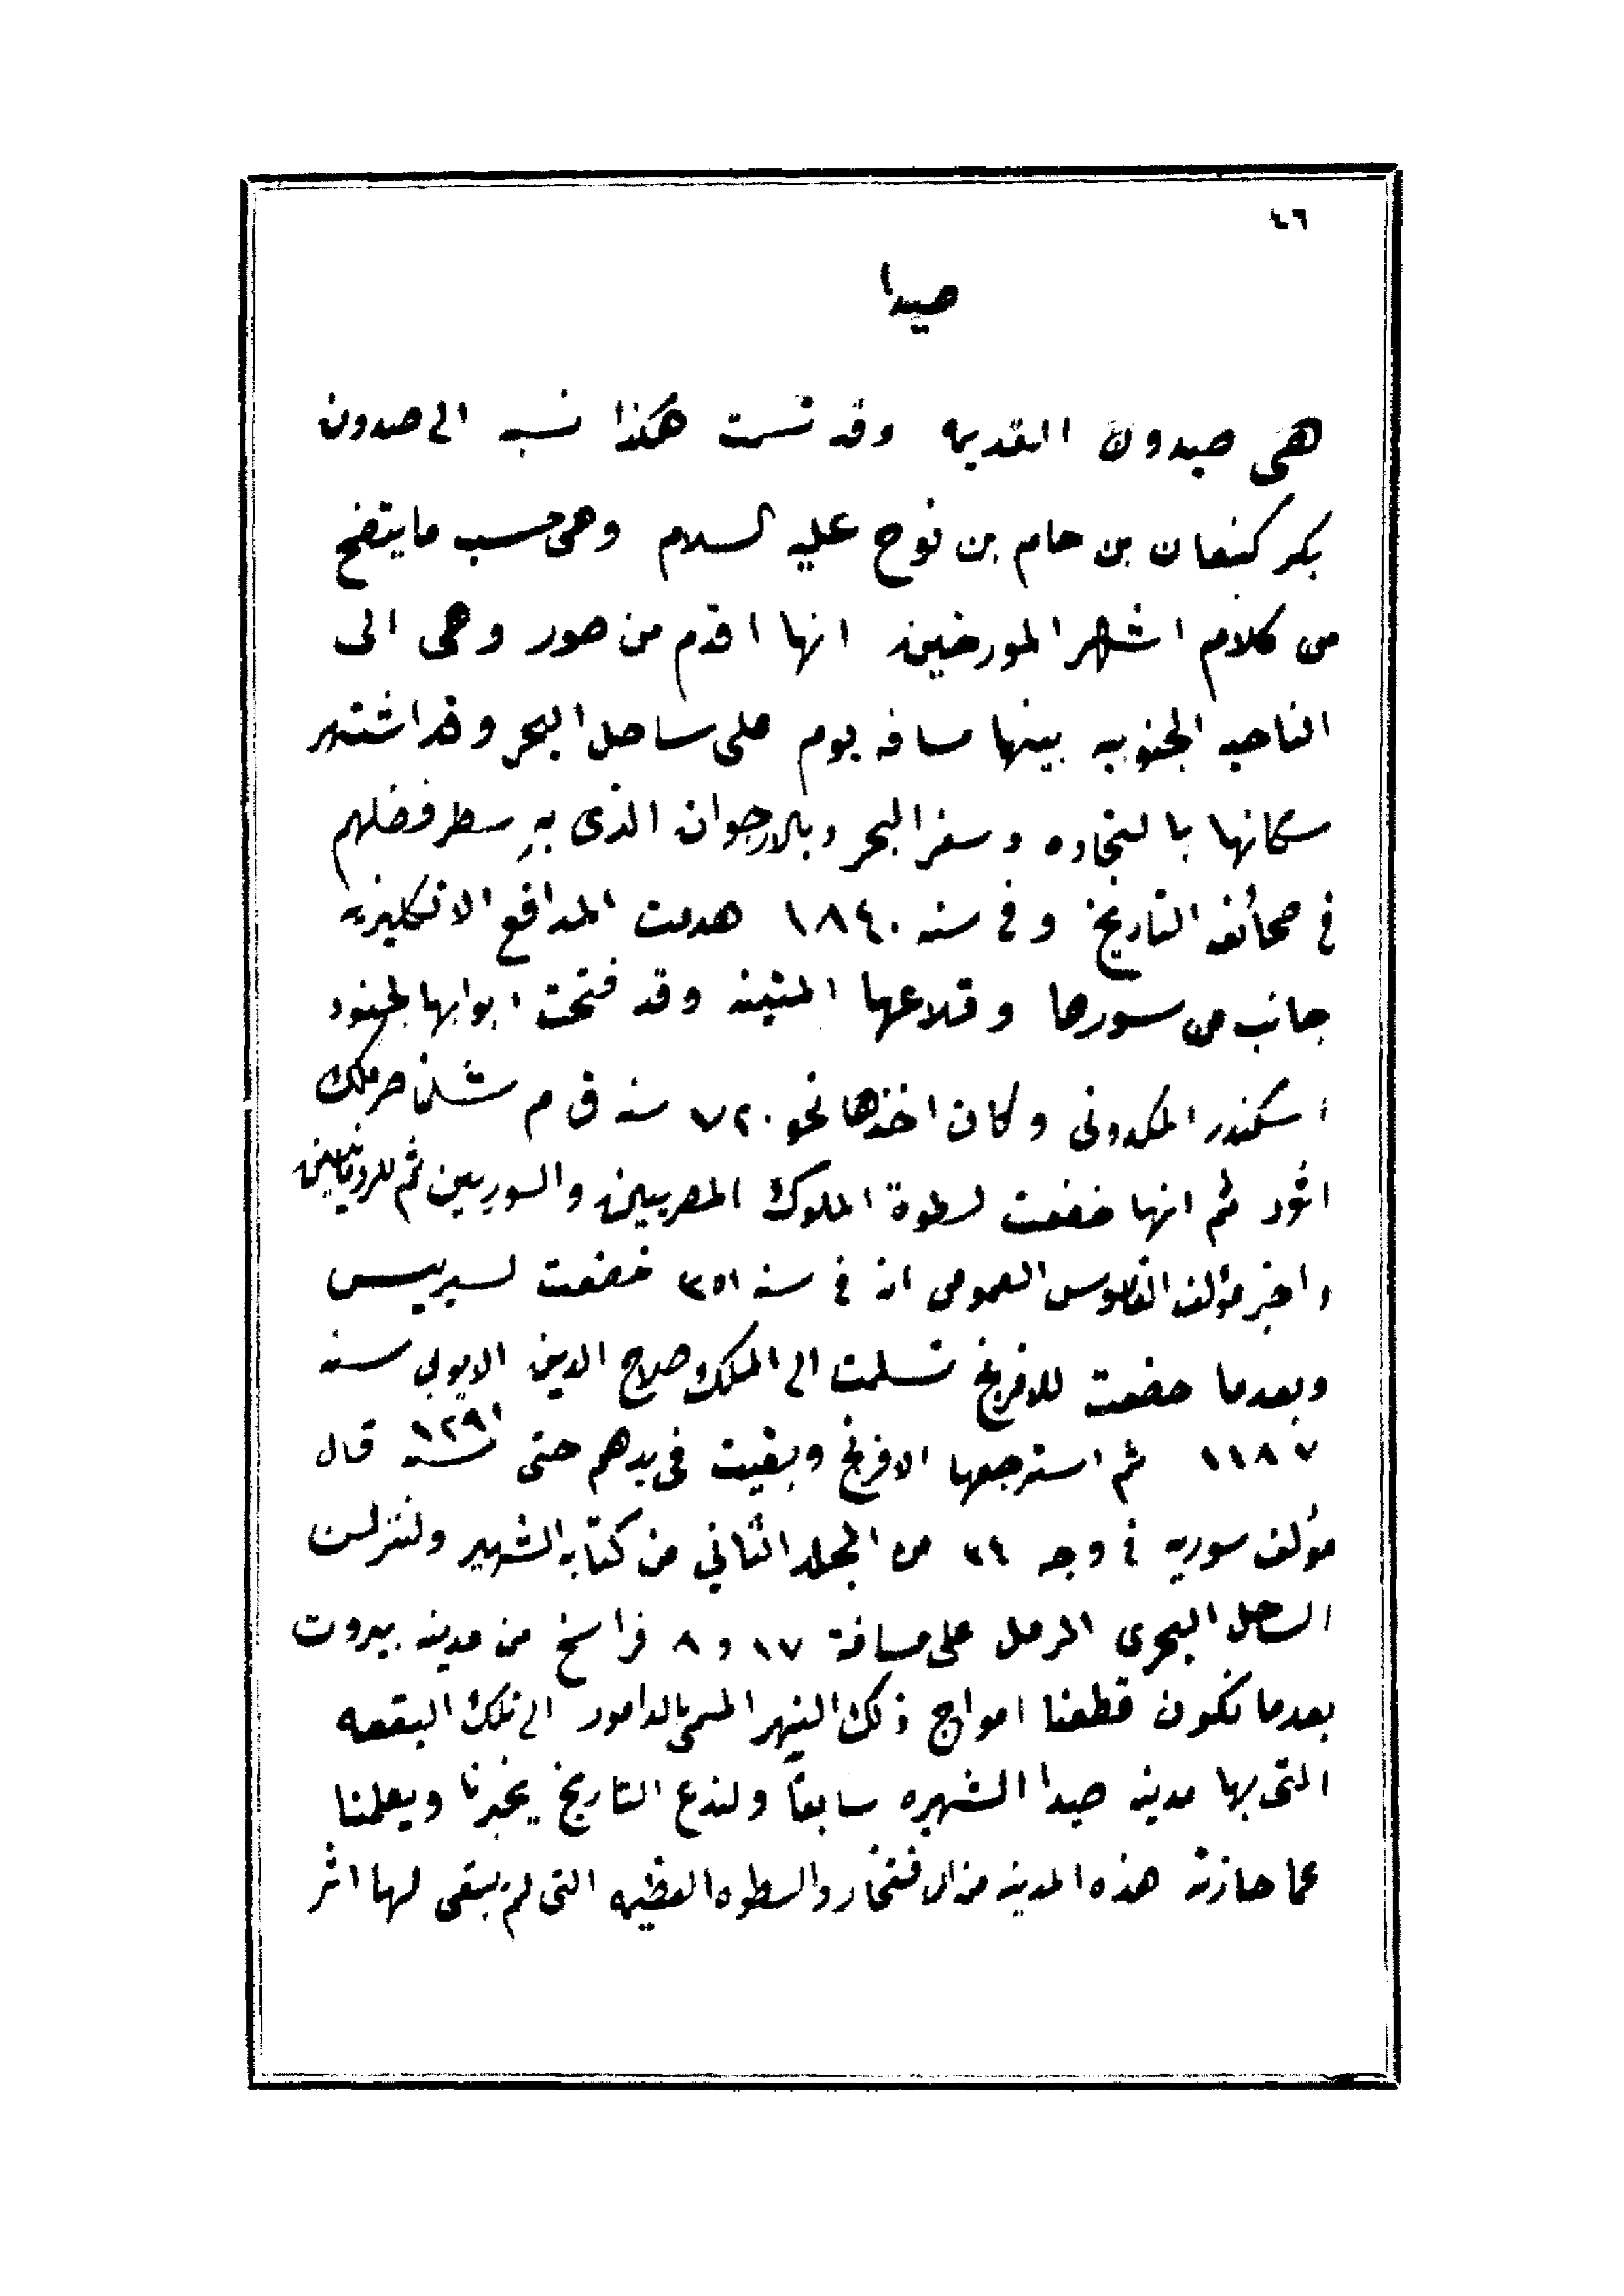 ٤٦
صيدا
هى صيدون القديمه وقد تسمت هكذا نسبه الى صيدون
بكر كنعان بن حام بن نوح عليه السلام وهى حسب ما يتضح
من كلام اشهر المورخين انها اقدم من صور وهى الى
الناحيه الجنوبيه بينها مسافه يوم على ساحل البحر وقد اشتهر
سكانها بالتجاره وسفر البحر وبالارجوان الذى به سطر فضلهم
فى صحائف التاريخ وفى سنه ١٨٤٠ هدمت المدافع الانكليزيه
جانب من سورها وقلاعها المتينه وقد فتحت ابوابها لجنود
اسكندر المكدونى وكان اخذها نحو ٧٢٠ سنه ق م ملك
اثور ثم انها خضعت لسطوة الملوك المصريين والسوريين ثم للرومانيين
واخبر مؤلف القاموس العمومى انه فى سنه ٣٥١ خضعت لسيريس
وبعدما خضعت للافرنج تسلمت الى الملك صلاح الدين الايوبى سنه
١١٨٧ ثم استرجعها الافرنج وبقيت فى يدهم حتى سنه ١٢٩١ قال
مؤلف سوريه فى وجه ٣٤ من المجلد الثاني من كتابه الشهير ولنترلن
الساحل البحرى المرمل على مسافة ١٧ و ٨ فراسخ من مدينه بيروت
بعدما نكون قطعنا امواج ذلك النهر المسمى بالدامور الى تلك البقعه
التى بها مدينه صيدا الشهيره سابقاً ولندع التاريخ يخبرنا ويعلمنا
عما حازته هذه المدينه من الافتخار والسطوه العظيمه التى لم يبقى لها اثر